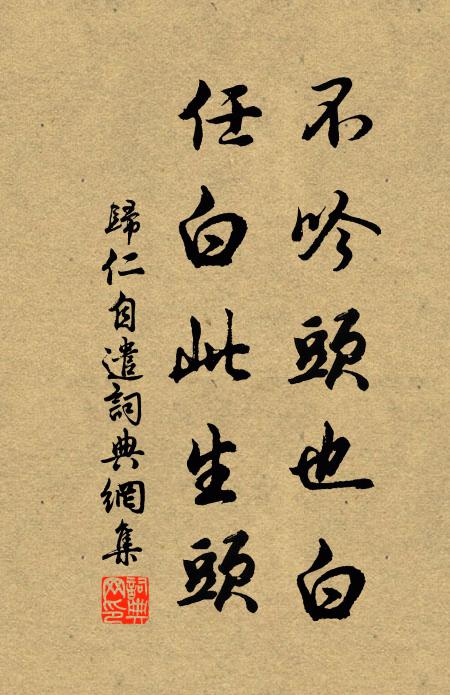 不吟頭也白
任白此生頭
歸仁自遣詞典網集
詞典
网印